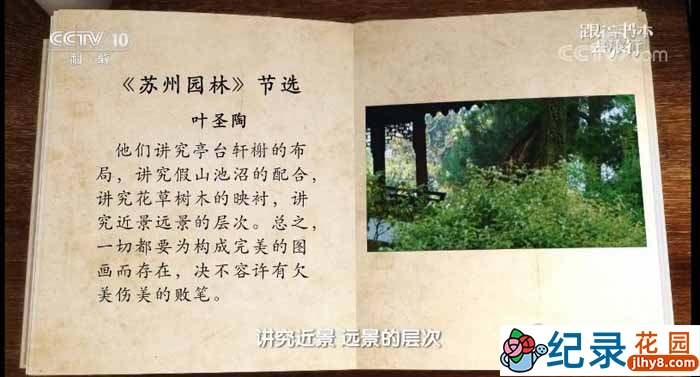 CCTV 10
科教
跟着书本
去旅行
CCTV.com
《苏州园林》节选
叶圣陶
他们讲究亭台轩榭的布
局，讲究假山池沼的配合，
讲究花草树木的映衬，讲
究近景远景的层次。总之，
一切都要为构成完美的图
画而存在，决不容许有欠
美伤美的败笔。
讲究近景 远景的层次
纪录花园
jlhy8.com